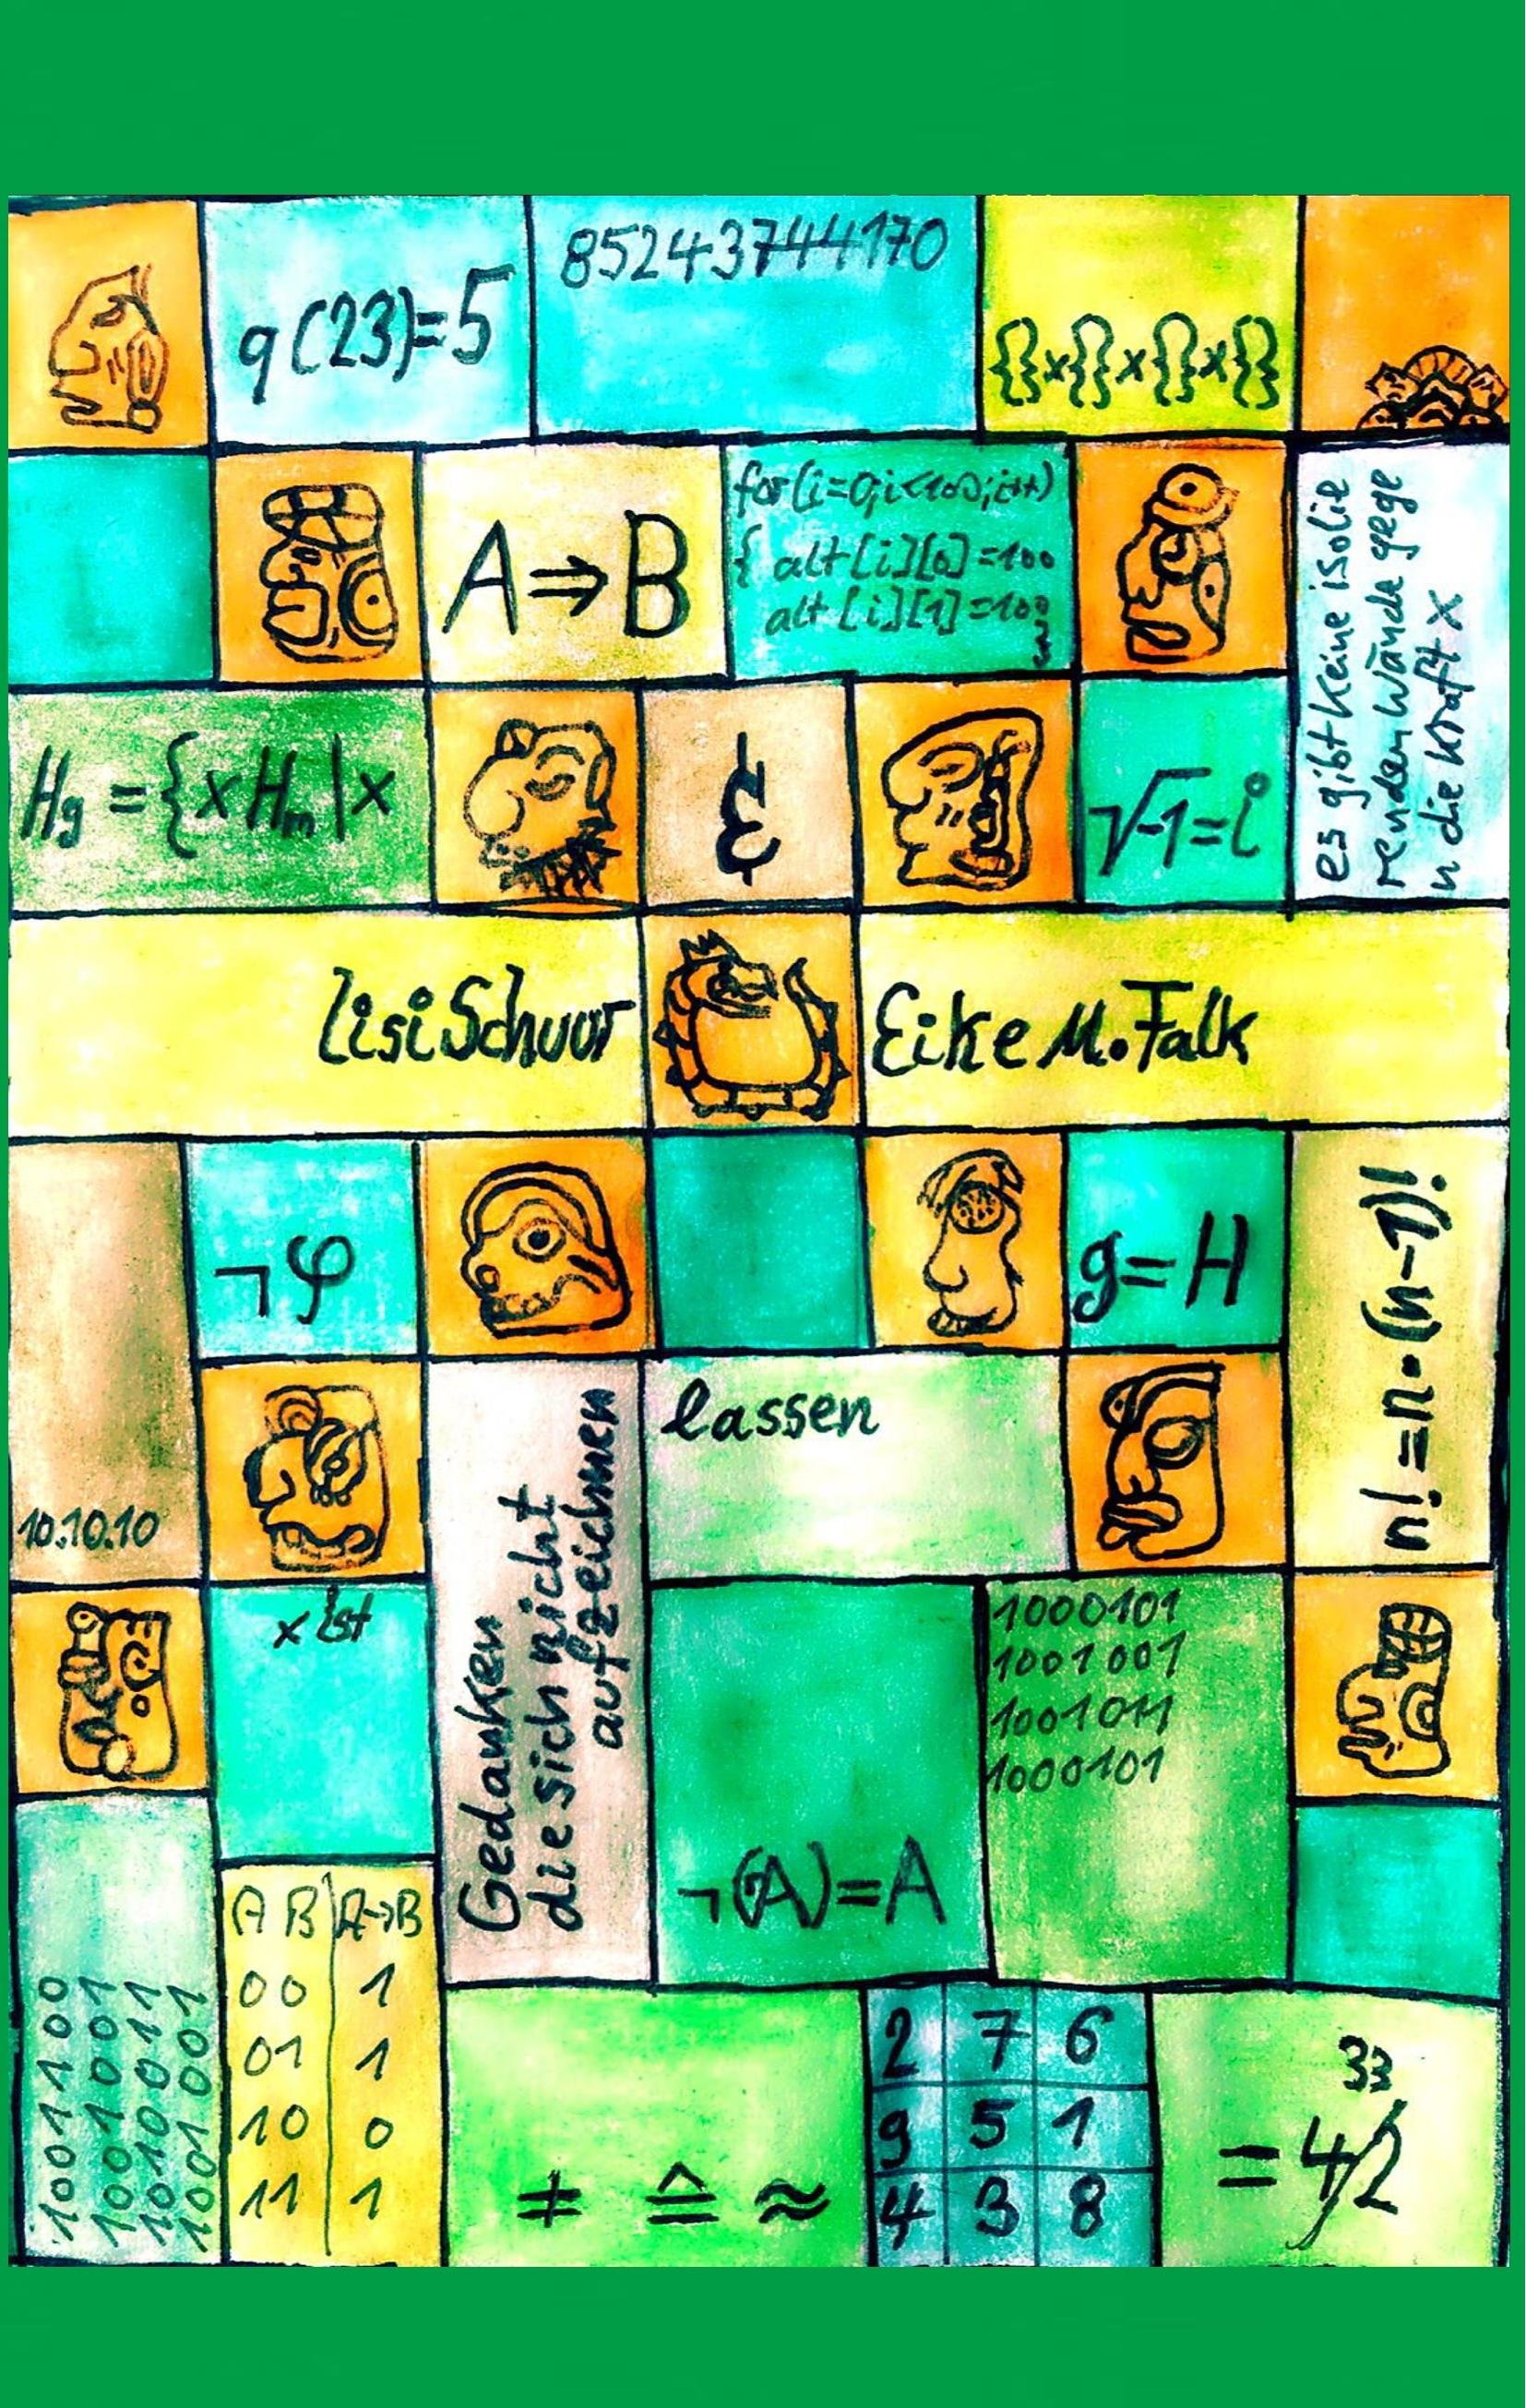 q(23)=5
85243744170
{}x{}x{}x{}
A⇒B
for(i=0;i<100;i++)
{ alt[i][0]=100
alt[i][1]=100;
}
es gibt keine isolie
renden Wände gege
n die Kraft x
Hg={xHm|x
&
√-1=i
Lisi Schuur
Eike M. Falk
¬φ
g=H
n!=n·(n-1)!
10.10.10
Gedanken
die sich nicht
aufzeichnen
lassen
x ist
¬(A)=A
1000101
1001001
1001011
1000101
10011100
10010001
10100011
1001001
A B|A→B
00 1
01 1
10 0
11 1
≠ ≙ ≈
2 7 6
9 5 1
4 3 8
33
=42